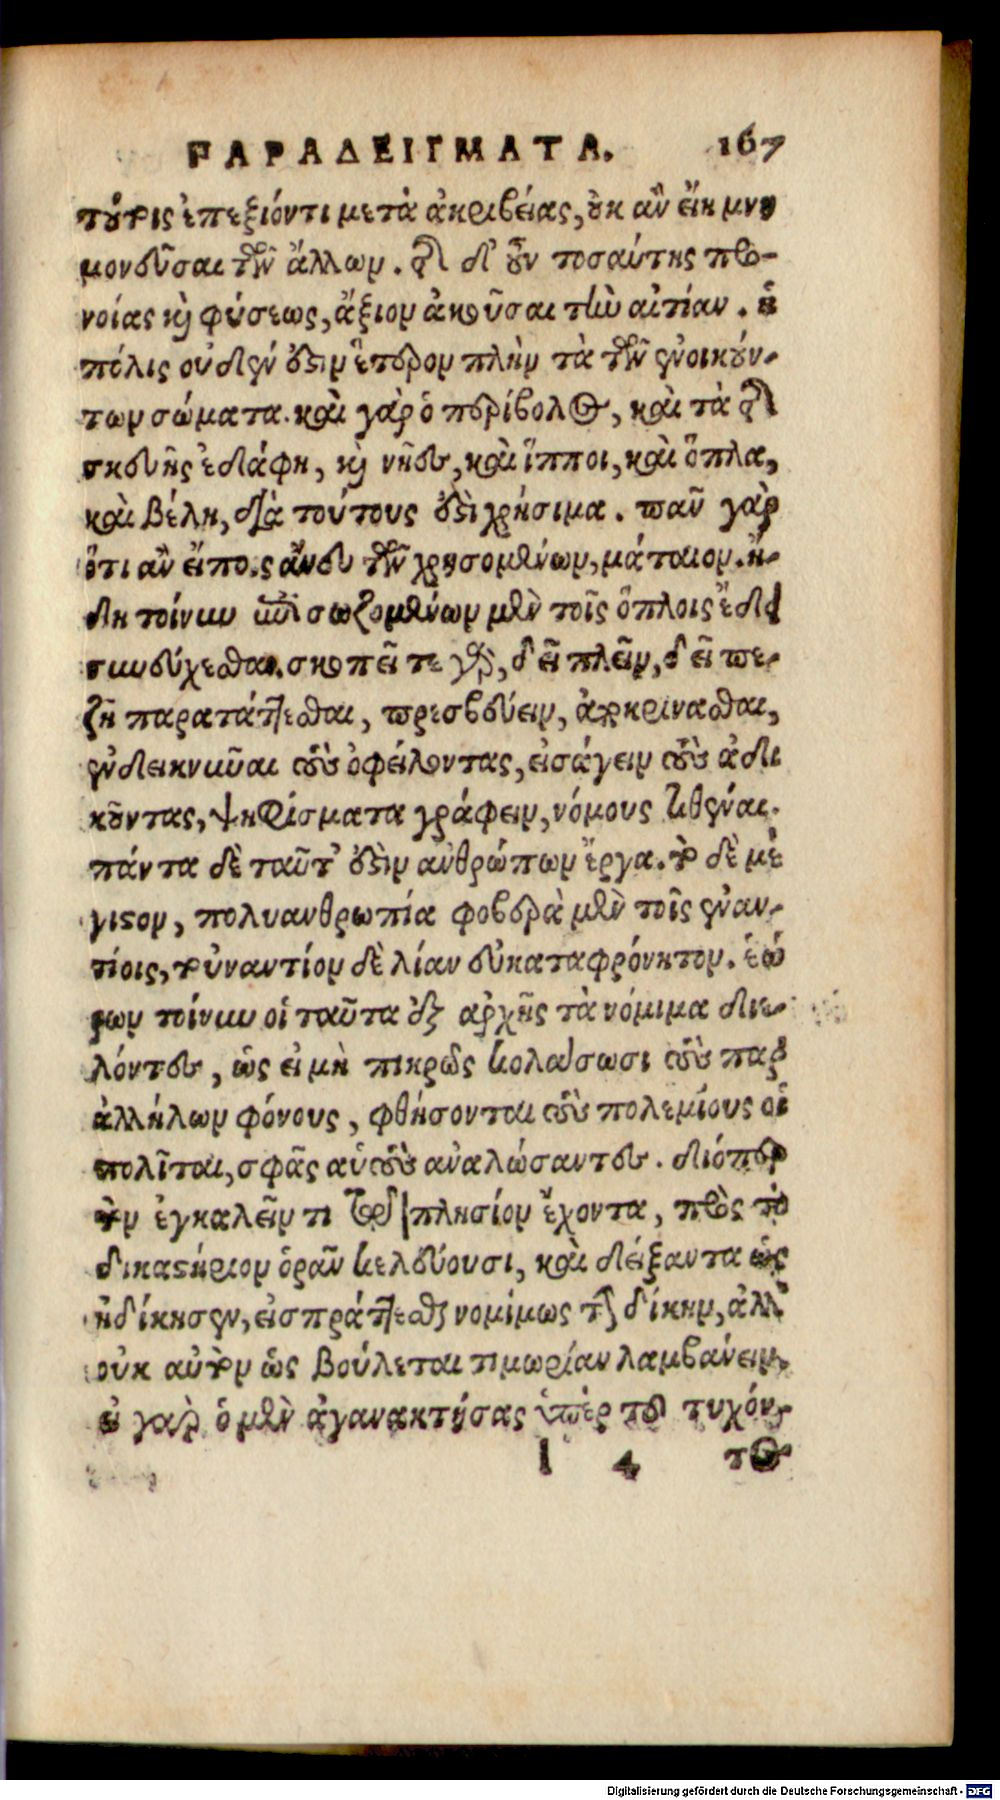 ΠΑΡΑΔΕΙΓΜΑΤΑ. 167
τούτοις ἐπεξιόντι μετὰ ἀκριβείας, οὐκ ἂν εἴη μνη
μονεῦσαι τῶν ἄλλων. τῆς δ' οὖν τοσαύτης προ-
νοίας καὶ φύσεως, ἄξιον ἀκοῦσαι τὴν αἰτίαν. ἡ
πόλις οὐδέν ἐστιν ἕτερον πλὴν τὰ τῶν ἐνοικούν-
των σώματα. καὶ γὰρ ὁ περίβολος, καὶ τὰ τῆς
σκευῆς ἐδάφη, καὶ νῆες, καὶ ἵπποι, καὶ ὅπλα,
καὶ βέλη, διὰ τούτους ἐστὶ χρήσιμα. πᾶν γὰρ
ὅτι ἂν εἴποις ἄνευ τῶν χρησομένων, μάταιον. ἤ-
δη τοίνυν περισωζομένων μὲν τοῖς ὅπλοις ἔδει
συνεύχεσθαι. σκοπεῖτε γάρ, δεῖ πλεῖν, δεῖ πε-
ζῇ παρατάττεσθαι, πρεσβεύειν, ἀποκρίνασθαι,
ἐνδεικνῦναι τοὺς ὀφείλοντας, εἰσάγειν τοὺς ἀδι
κοῦντας, ψηφίσματα γράφειν, νόμους τιθέναι.
πάντα δὲ ταῦτ' ἐστὶν ἀνθρώπων ἔργα. τὸ δὲ μέ
γιστον, πολυανθρωπία φοβερὰ μὲν τοῖς ἐναν-
τίοις, τοὐναντίον δὲ λίαν εὐκαταφρόνητον. ἑώ
ρων τοίνυν οἱ ταῦτα ἐξ ἀρχῆς τὰ νόμιμα διε-
λόντες, ὡς εἰ μὴ πικρῶς κολάσωσι τοὺς παρ'
ἀλλήλων φόνους, φθήσονται τοὺς πολεμίους οἱ
πολῖται, σφᾶς αὑτοὺς ἀναλώσαντες. διόπερ
τὸν ἐγκαλεῖν τι τῷ πλησίον ἔχοντα, πρὸς τὸ
δικαστήριον ὁρᾶν κελεύουσι, καὶ δείξαντα ὡς
ἠδίκησεν, εἰσπράττεσθαι νομίμως τὴν δίκην, ἀλλ'
οὐκ αὐτὸν ὡς βούλεται τιμωρίαν λαμβάνειν.
εἰ γὰρ ὁ μὲν ἀγανακτήσας ὑπὲρ τοῦ τυχόν-
l 4 τος
Digitalisierung gefördert durch die Deutsche Forschungsgemeinschaft - DFG